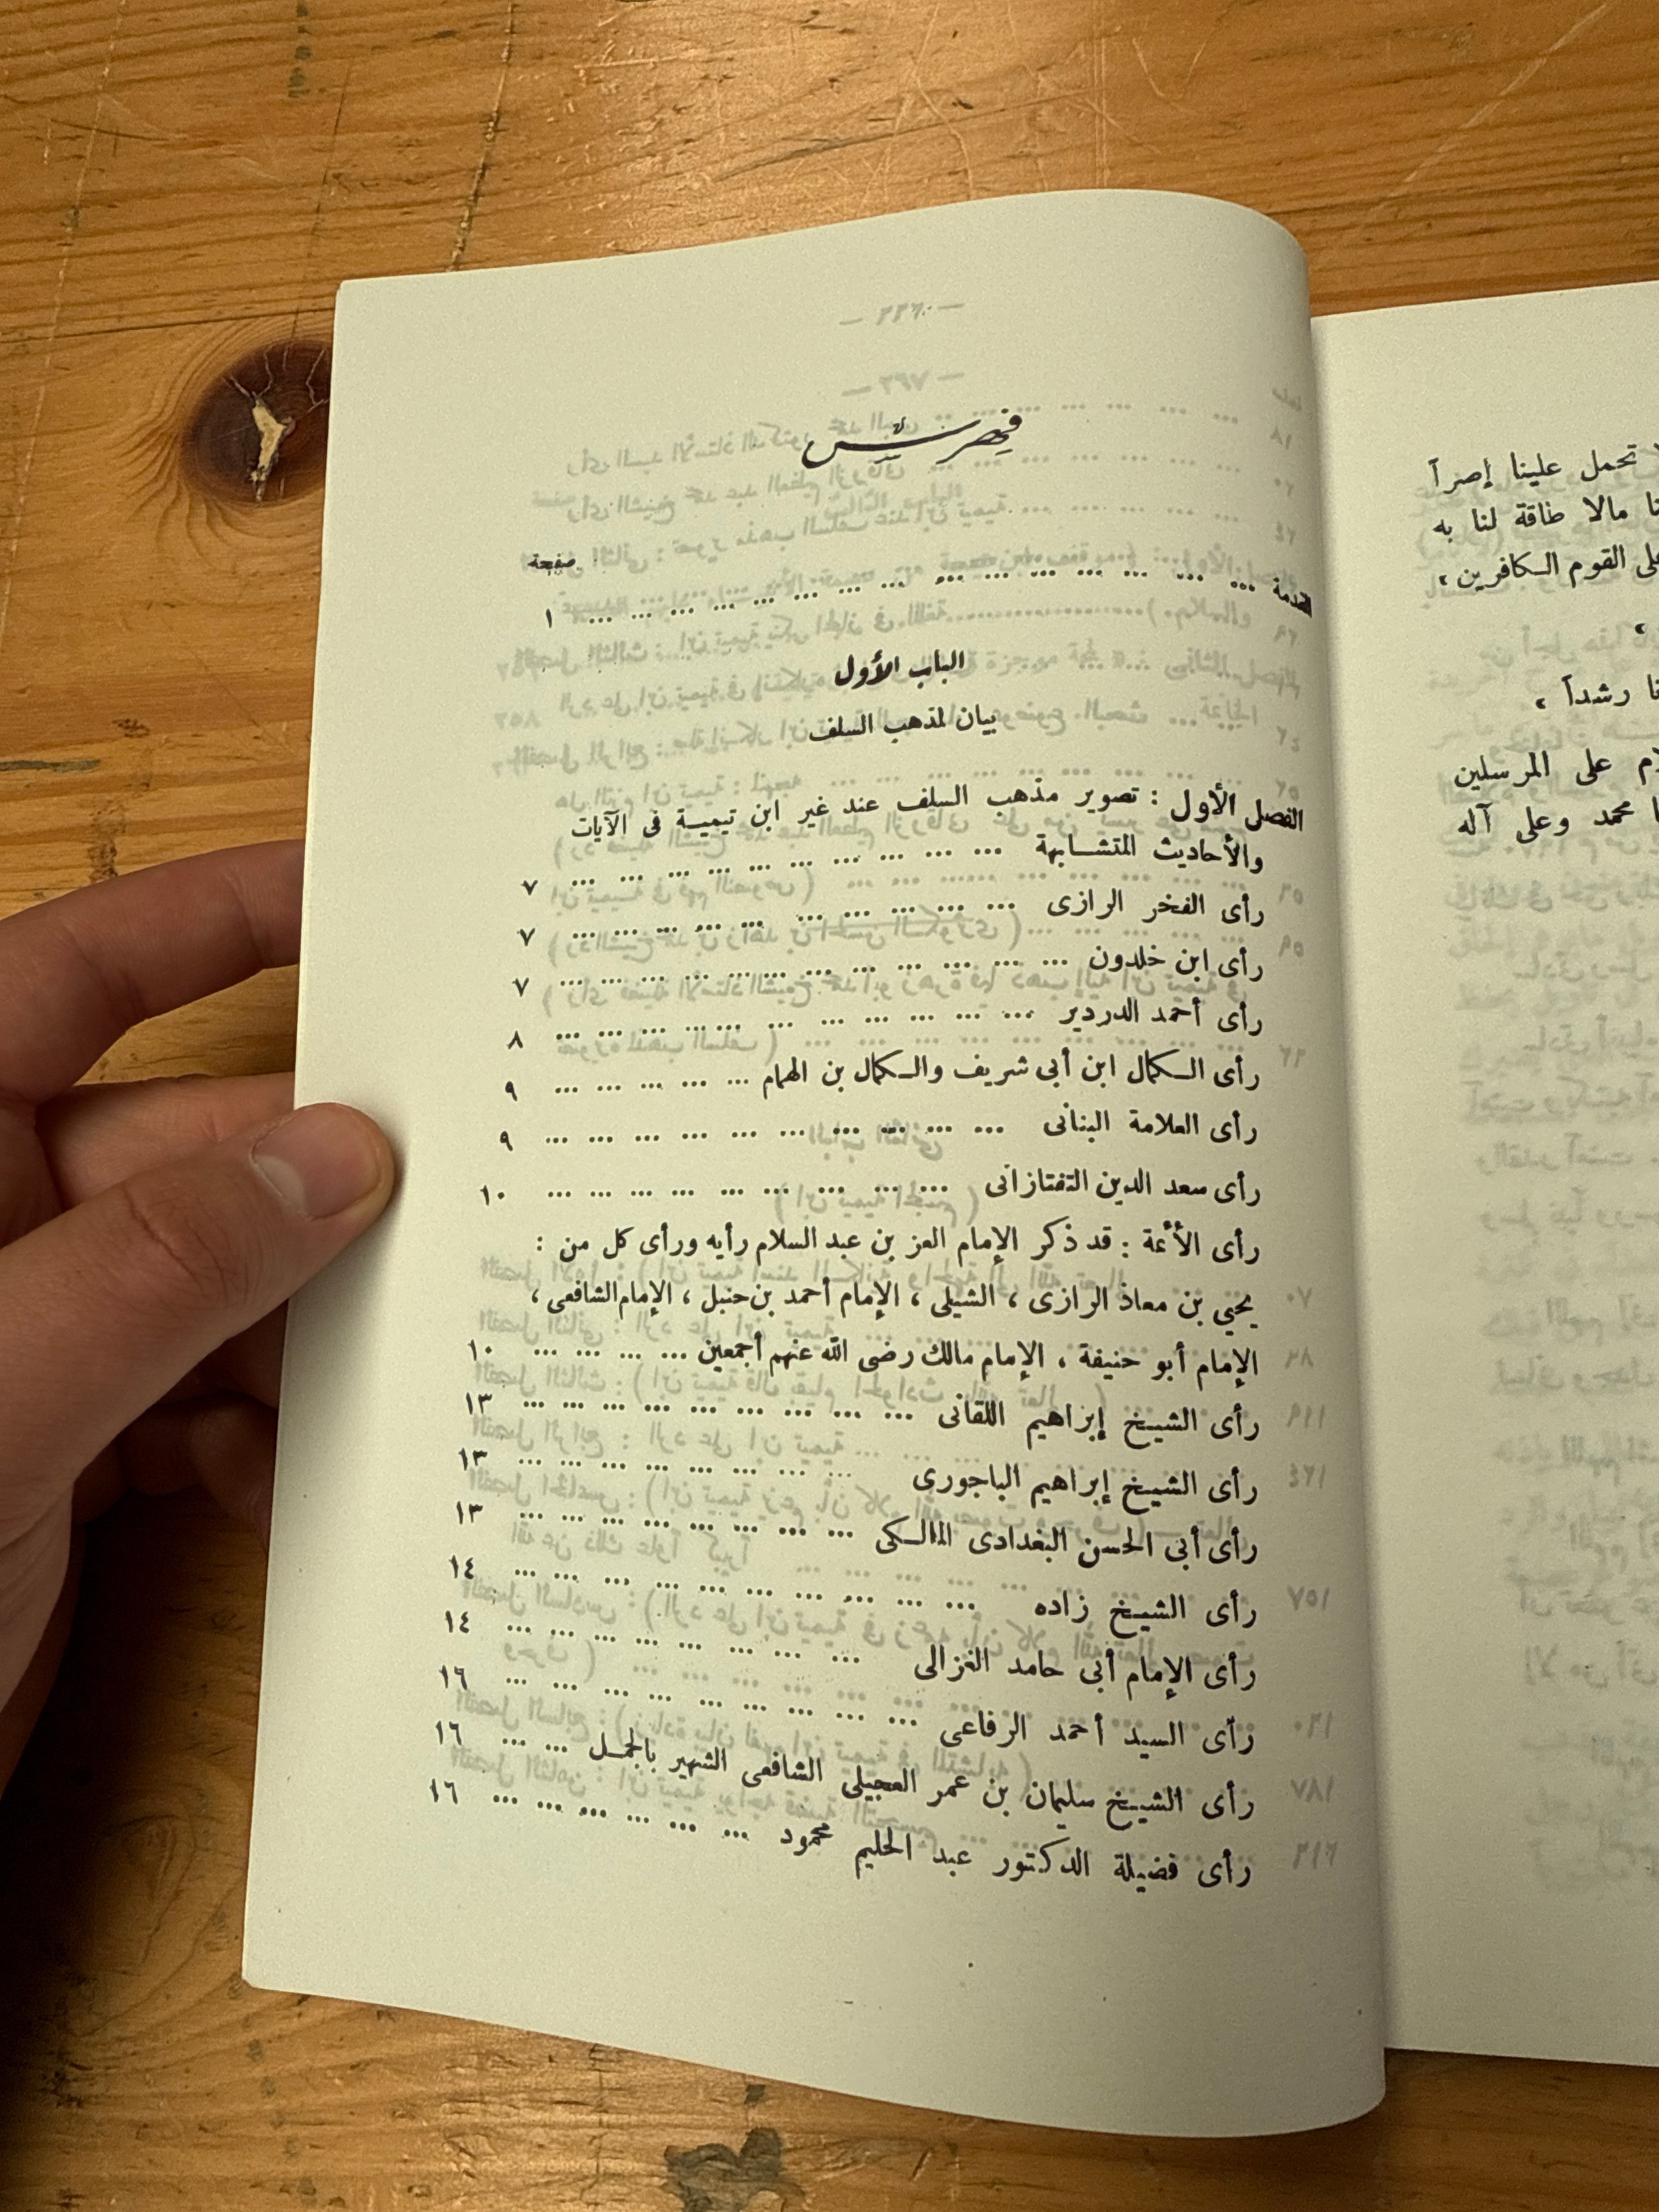 فهرس
صفحة
المقدمة ... ... ... ... ... ... ... ... ... ... ... ... ... ... ... ١
الباب الأول
بيان لمذهب السلف
الفصل الأول : تصوير مذهب السلف عند غير ابن تيمية فى الآيات
والأحاديث المتشابهة ... ... ... ... ... ... ... ... ... ... ٧
رأى الفخر الرازى ... ... ... ... ... ... ... ... ... ... ٧
رأى ابن خلدون ... ... ... ... ... ... ... ... ... ... ... ٧
رأى أحمد الدردير ... ... ... ... ... ... ... ... ... ... ... ٨
رأى الكمال ابن أبى شريف والكمال بن الهمام ... ... ... ... ... ٩
رأى العلامة البنانى ... ... ... ... ... ... ... ... ... ... ٩
رأى سعد الدين التفتازانى ... ... ... ... ... ... ... ... ... ١٠
رأى الأئمة : قد ذكر الإمام العز بن عبد السلام رأيه ورأى كل من :
يحيي بن معاذ الرازى ، الشبلى ، الإمام أحمد بن حنبل ، الإمام الشافعى ،
الإمام أبو حنيفة ، الإمام مالك رضى الله عنهم أجمعين ... ... ... ... ١٠
رأى الشيخ إبراهيم اللقانى ... ... ... ... ... ... ... ... ... ... ١٣
رأى الشيخ إبراهيم الباجورى ... ... ... ... ... ... ... ... ... ١٣
رأى أبى الحسن البغدادى المالكى ... ... ... ... ... ... ... ... ... ١٣
رأى الشيخ زاده ... ... ... ... ... ... ... ... ... ... ... ١٤
رأى الإمام أبى حامد الغزالى ... ... ... ... ... ... ... ... ... ١٤
رأى السيد أحمد الرفاعى ... ... ... ... ... ... ... ... ... ... ١٦
رأى الشيخ سليمان بن عمر العجيلى الشافعى الشهير بالجمل ... ... ١٦
رأى فضيلة الدكتور عبد الحليم محمود ... ... ... ... ... ... ١٦
تحمل علينا إصرآ
مالا طاقة لنا به
القوم الكافرين ،
رشدآ ،
على المرسلين
محمد وعلى آله